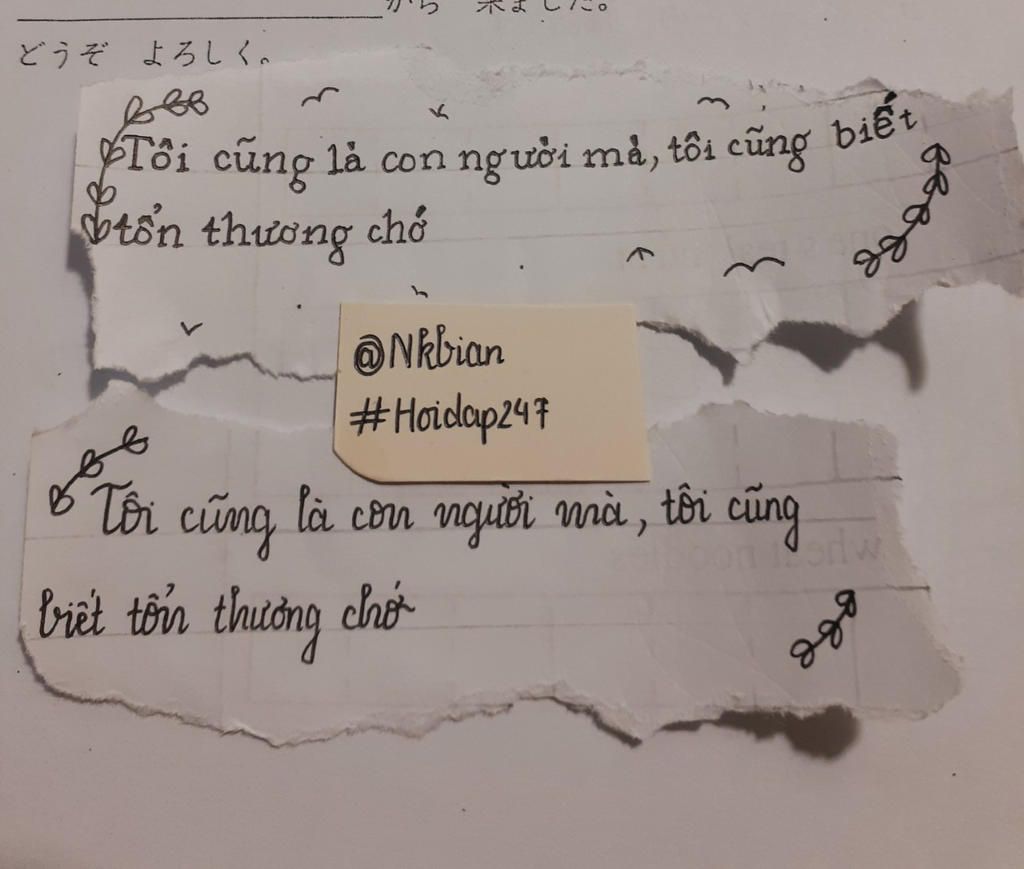 から 来ました。
どうぞ よろしく。
Tôi cũng là con người mà, tôi cũng biết
tổn thương chớ
@Nkbian
#Hoidap247
Tôi cũng là con người mà, tôi cũng
biết tổn thương chớ
wheat noodles